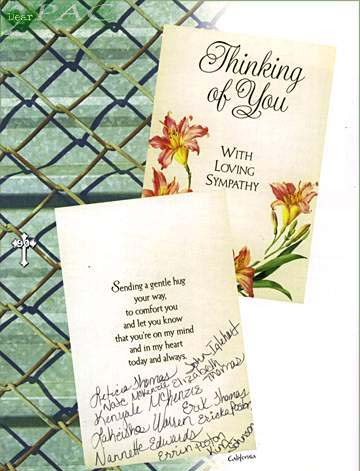 Dear
2PAC
Thinking
of You
WITH
LOVING
SYMPATHY
Sending a gentle hug
your way,
to comfort you
and let you know
that you're on my mind
and in my heart
today and always.
Leticia Thomas
Nate McKenzie Elizabeth
Kenyale McKenzie Thomas
Lakeisha Warren Erik Thomas
Nannette Edwards Ericka Poston
Erriun Poston
Kim Johnson
California